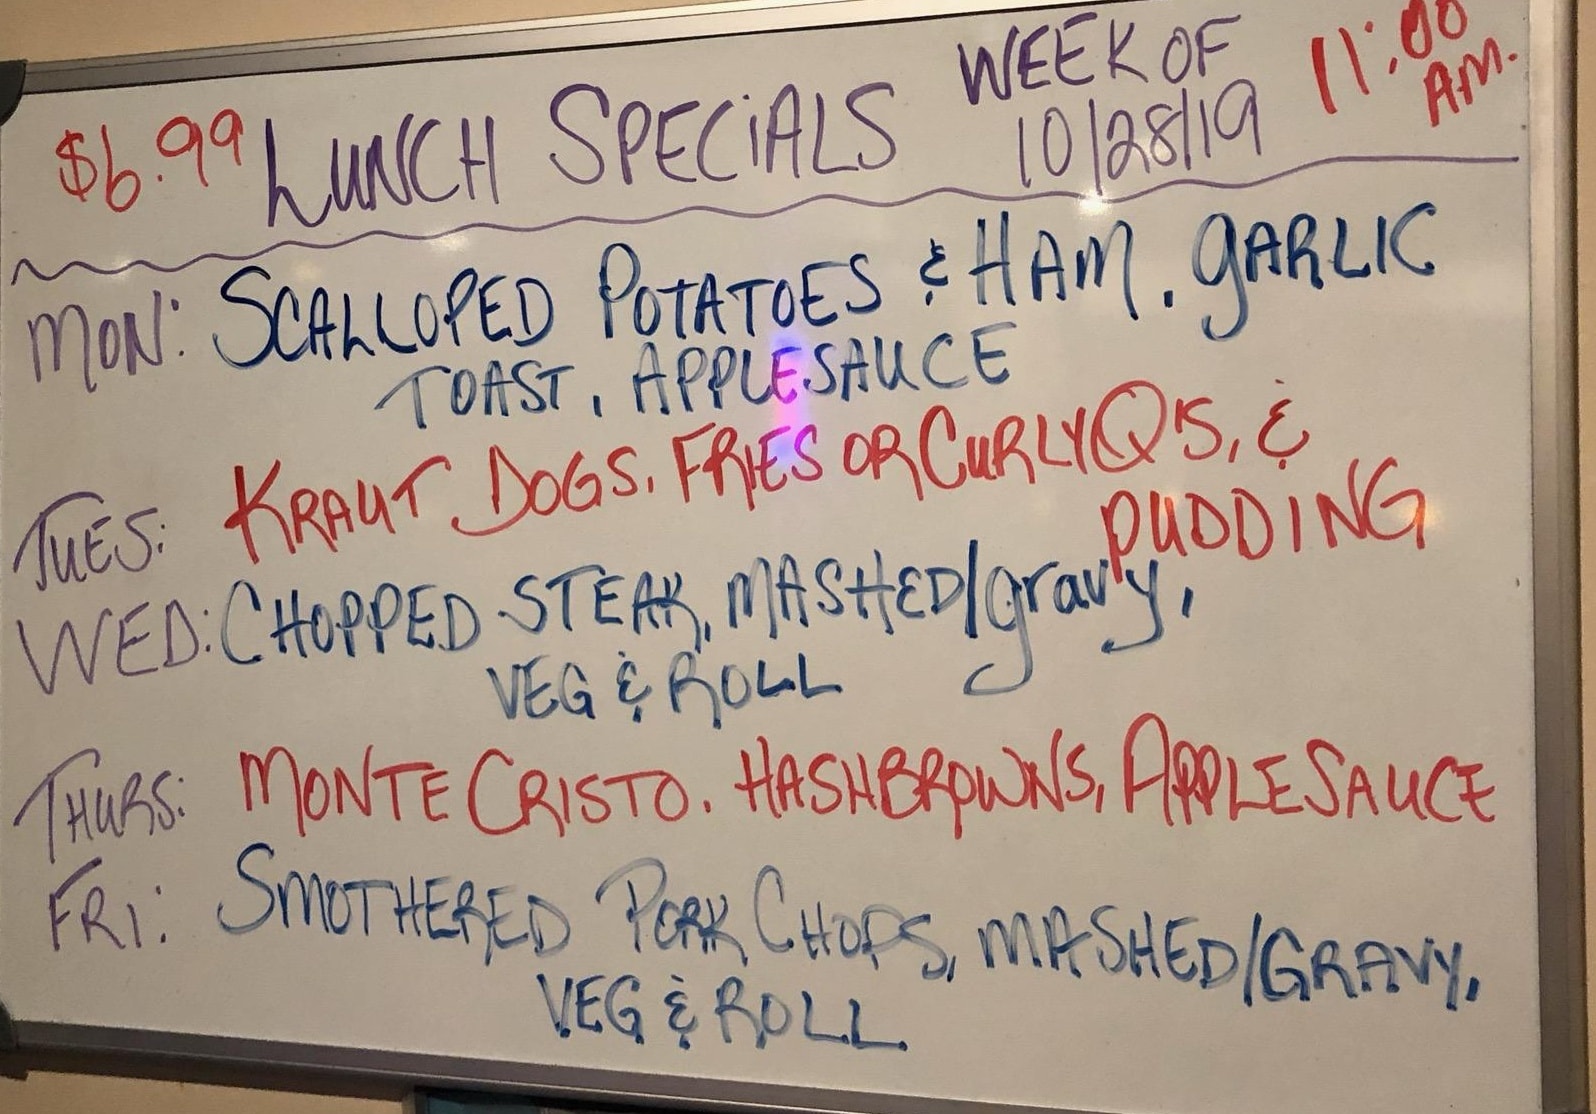 $6.99 LUNCH SPECiALS WEEK OF 10/28/19 11:00 AM.
MON: SCALLOPED POTATOES & HAM, GARLIC
TOAST, APPLESAUCE
TUES: KRAUT DOGS, FRIES OR CURLYQ'S, &
PUDDING
WED: CHOPPED STEAK, MASHED/gravy,
VEG & ROLL
THURS: MONTE CRISTO, HASHBROWNS, APPLESAUCE
FRI: SMOTHERED PORK CHOPS, MASHED/GRAVY,
VEG & ROLL